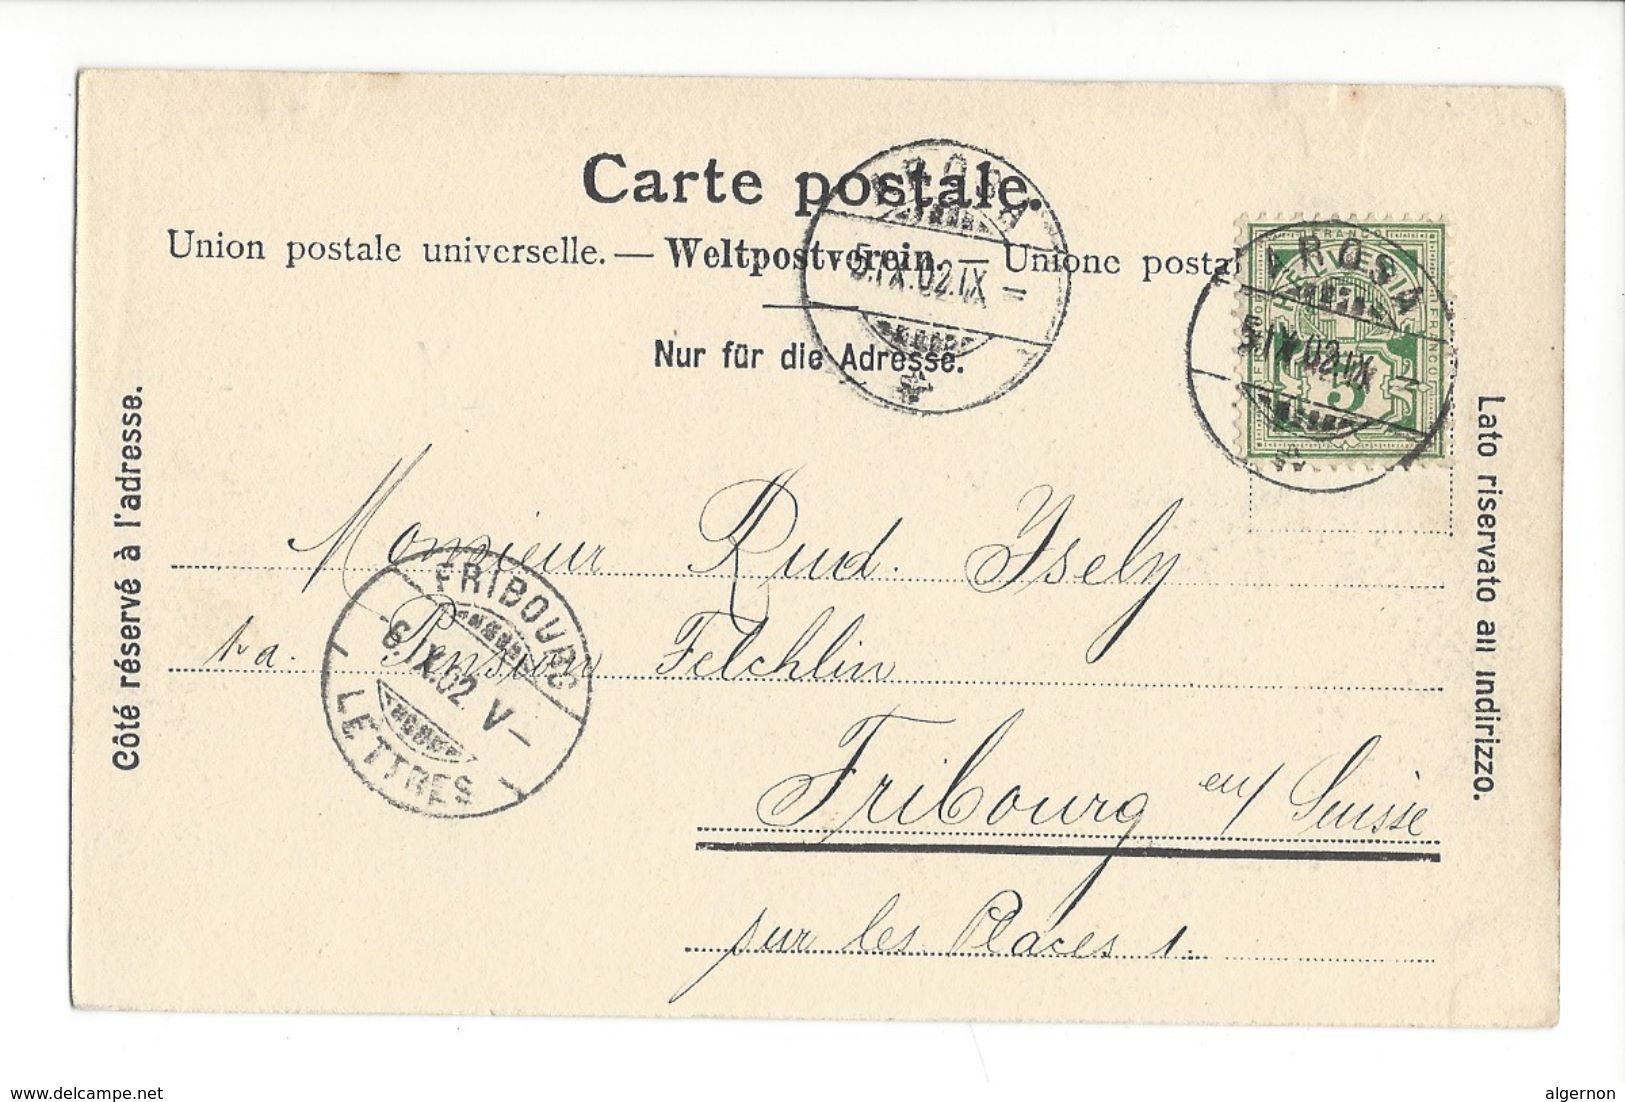 Carte postale.
Union postale universelle. — Weltpostverein. — Unione posta
Nur für die Adresse.
Côté réservé à l'adresse.
Lato riservato all indirizzo.
AROSA
5.IX.02.IX
FRANCO
HELVETIA
FRANCO
5
AROSA
5.IX.02.IX
Monsieur Rud. Isely
Pension Felchlin
Fribourg en/ Suisse
sur les Places 1.
FRIBOURG
6.IX.02 V
LETTRES
www.delcampe.net
algernon